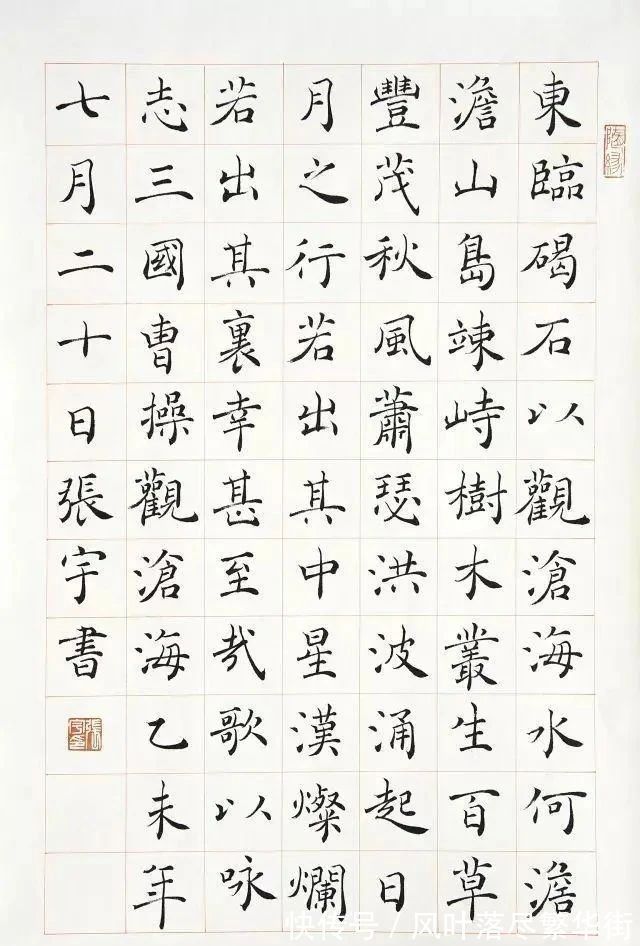 東臨碣石以觀滄海水何澹
澹山島竦峙樹木叢生百草
豐茂秋風蕭瑟洪波涌起日
月之行若出其中星漢燦爛
若出其裏幸甚至哉歌以咏
志三國曹操觀滄海乙未年
七月二十日張宇書
張宇印
快传号 / 风叶落尽繁华街